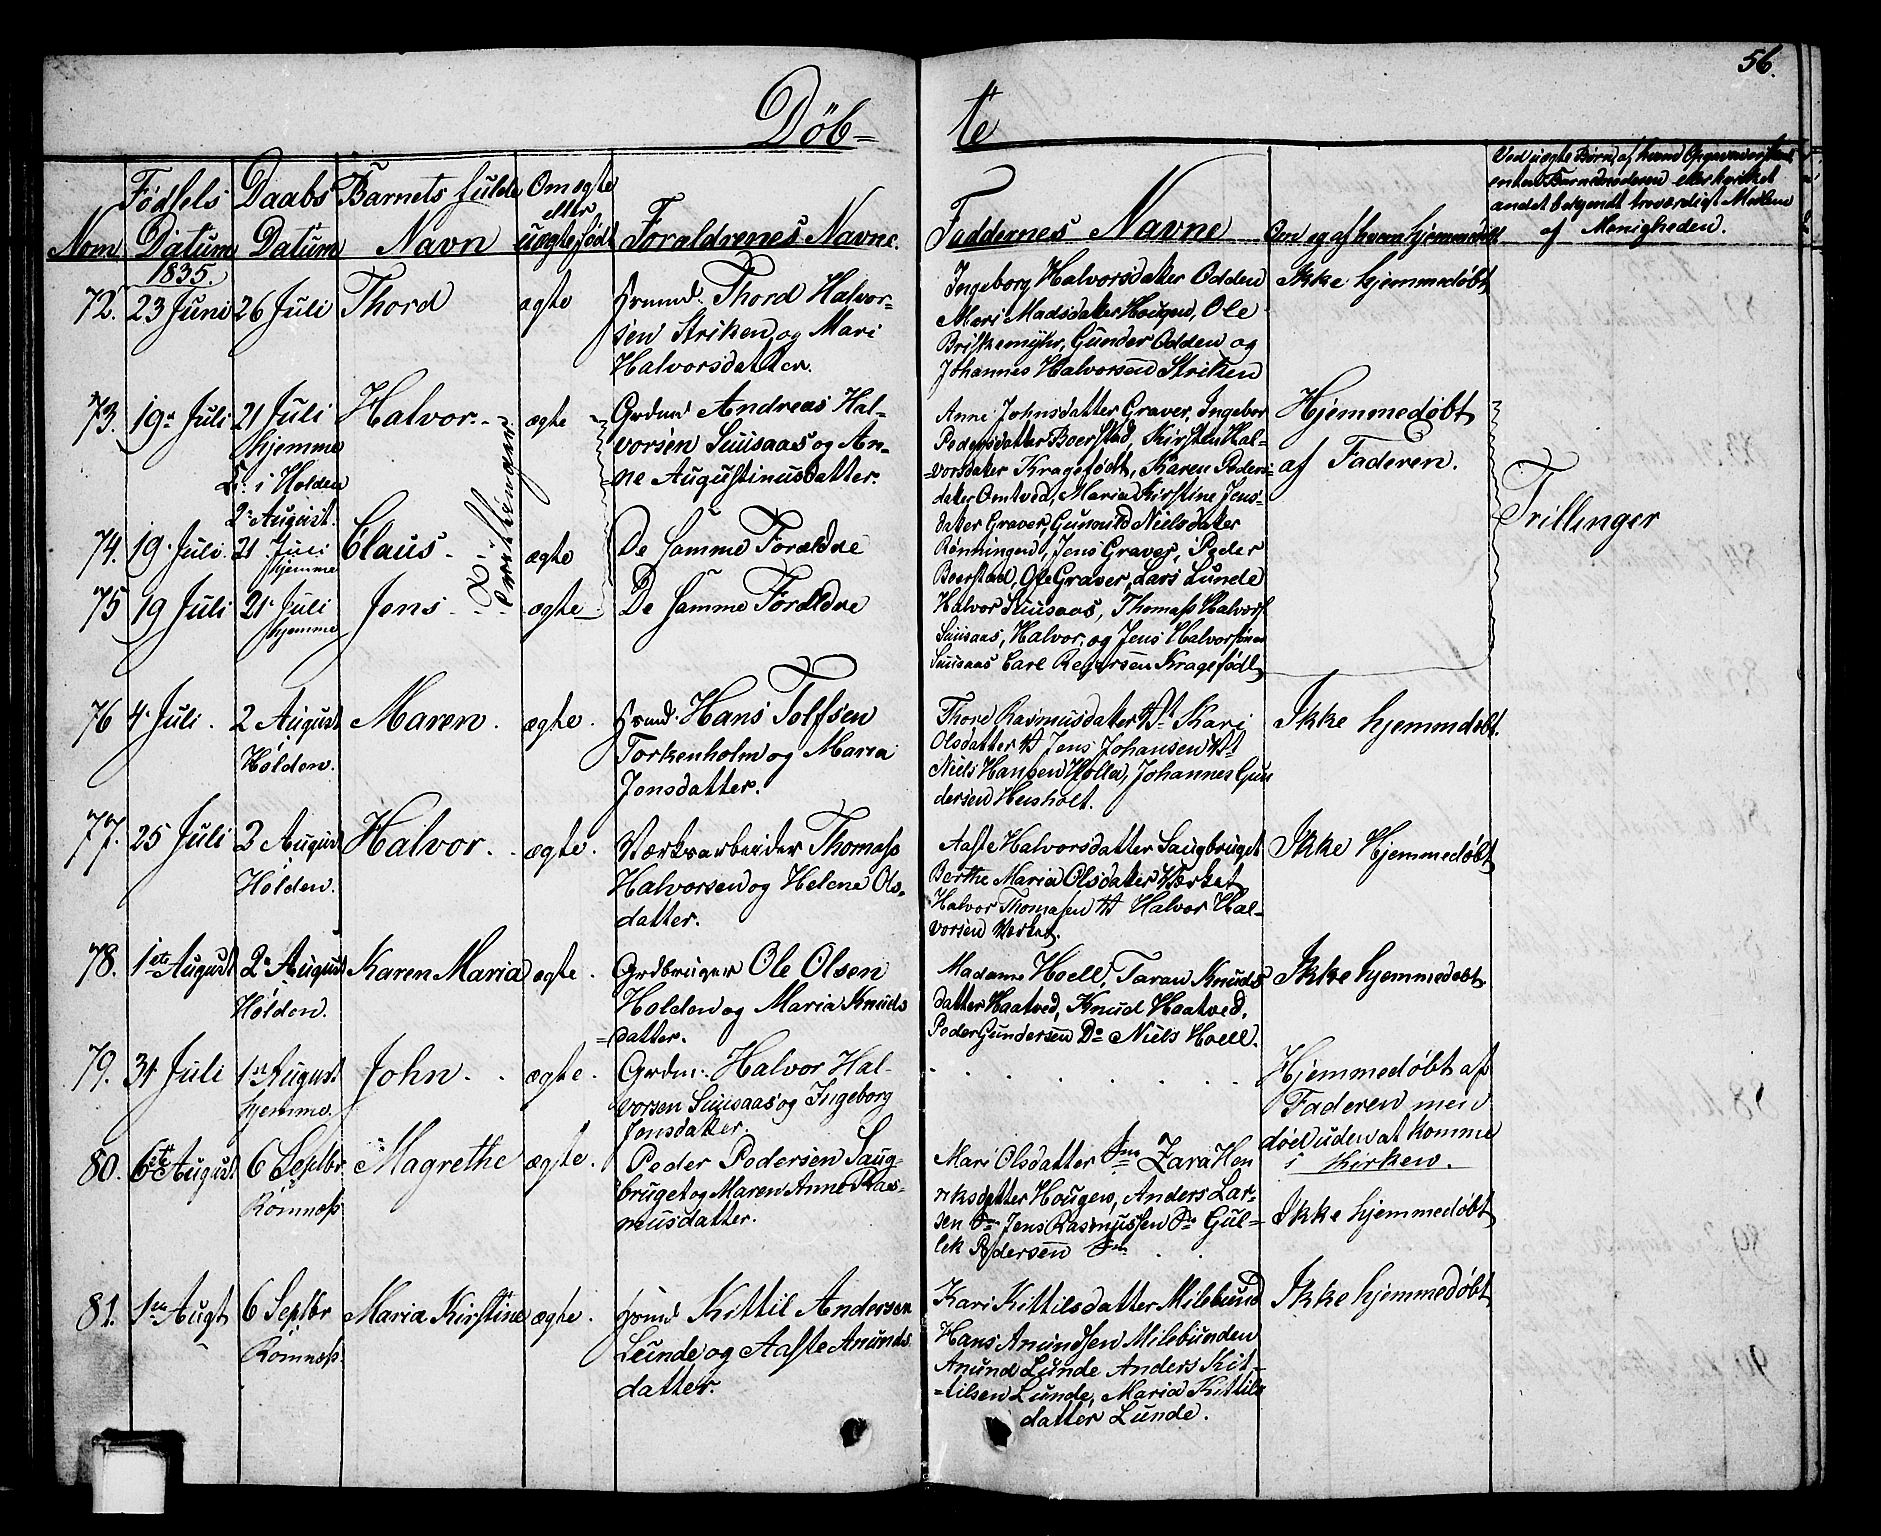 56.
Döb=
te
Nom.
Födsels Datum
Daabs Datum
Barnets fulde Navn
Om ægte eller uægte født
Forældrenes Navne.
Faddernes Navne
Om og af hvem hjemmedöbt
Ved uægte Börn, af hvem
enten Barnemoderen eller hvilket
andet bekjendt troværdigt Medlem
af Menigheden.
1835.
72. 23 Juni 26 Juli Thord ægte
Thord Halvor=
sen Striken og Mari
Halvorsdatter.
Ingeborg Halvorsdatter Odden
Mari Madsdatter Hougen, Ole
Briskemyhr, Gunder Odden og
Johannes Halvorsen Striken
Ikke hjemmedöbt
73. 19 Juli 21 Juli Halvor. ægte
hjemme
i Holden
2 August.
Tvillinger
Grdmd Andreas Hal=
vorsen Suusaas og An=
ne Augustinusdatter.
Anne Johnsdatter Graver, Ingebor
Pedersdatter Boerstad, Kirsten Hal=
vorsdater Kragefödt, Karen Peders=
dater Omtved, Maria Kirstine Jens=
dater Graver, Gunnild Nielsdater
Rönningen, Jens Graver, Peder
Boerstad, Ole Graver, Lars Lunde
Halvor Suusaas, Thomass Halvors
Suusaas, Halvor, og Jens Halvorsöner
Suusaas Carl Kragefödt
Hjemmedöbt
af Faderen.
Trillinger
74. 19 Juli 21 Juli Claus. ægte
hjemme
De samme Forældre
75 19 Juli 21 Juli Jens ægte
hjemme
De samme Forældre
76 4 Juli. 2 August Maren. ægte.
Holden.
Hans Tolfsen
Torkenholm og Maria
Jonsdatter.
Thore Rasmusdater Kari
Olsdatter Jens Johansen
Niels Hansen Holla, Johannes Gun
dersen Heisholt.
Ikke hjemmdöbt.
77. 25 Juli 2 August Halvor. ægte.
Holden.
Værksarbeider Thomass
Halvorsen og Helene Ols=
datter.
Aaste Halvorsdatter Saugbruget
Berthe Maria Olsdater Værket
Halvor Thomasen Halvor Hal=
vorsen Værket.
Ikke Hjemmedöbt
78. 1ste August 2 August Karen Maria ægte.
Holden.
Grdbruger Ole Olsen
Holden og Maria Knuds
=datter.
Madame Hoell, Taran Knuds
datter Haatved, Knud Haatved,
Peder Gundersen Do Niels Hoell.
Ikke hjemmedöbt
79. 31 Juli 1 August John. ægte.
hjemme.
Grdm. Halvor Hal=
vorsen Suusaas og Ingeborg
Jonsdatter.
Hjemmedöbt af
Faderen men
döel uden at komme
i Kirken.
80. 6te August 6 Septbr. Magrethe ægte.
Romnæss
Peder Pedersen Saug=
bruget og Maren Anne Ras=
musdatter.
Mari Olsdatter Zara Hen
riksdatter Hougen, Anders Lar=
sen Jens Rasmussen Gul=
lek Pedersen
Ikke hjemmedöbt
81. 1 Augt 6 Septbr Maria Kirstine ægte.
Romnæss.
Kittil Andersen
Lunde og Aaste Anunds
datter.
Kari Kittilsdatter Milebund
Hans Anundsen Milebunden
Anund Lunde Anders Kit=
=tilsen Lunde, Maria Kittils
datter Lunde.
Ikke hjemmedöbt